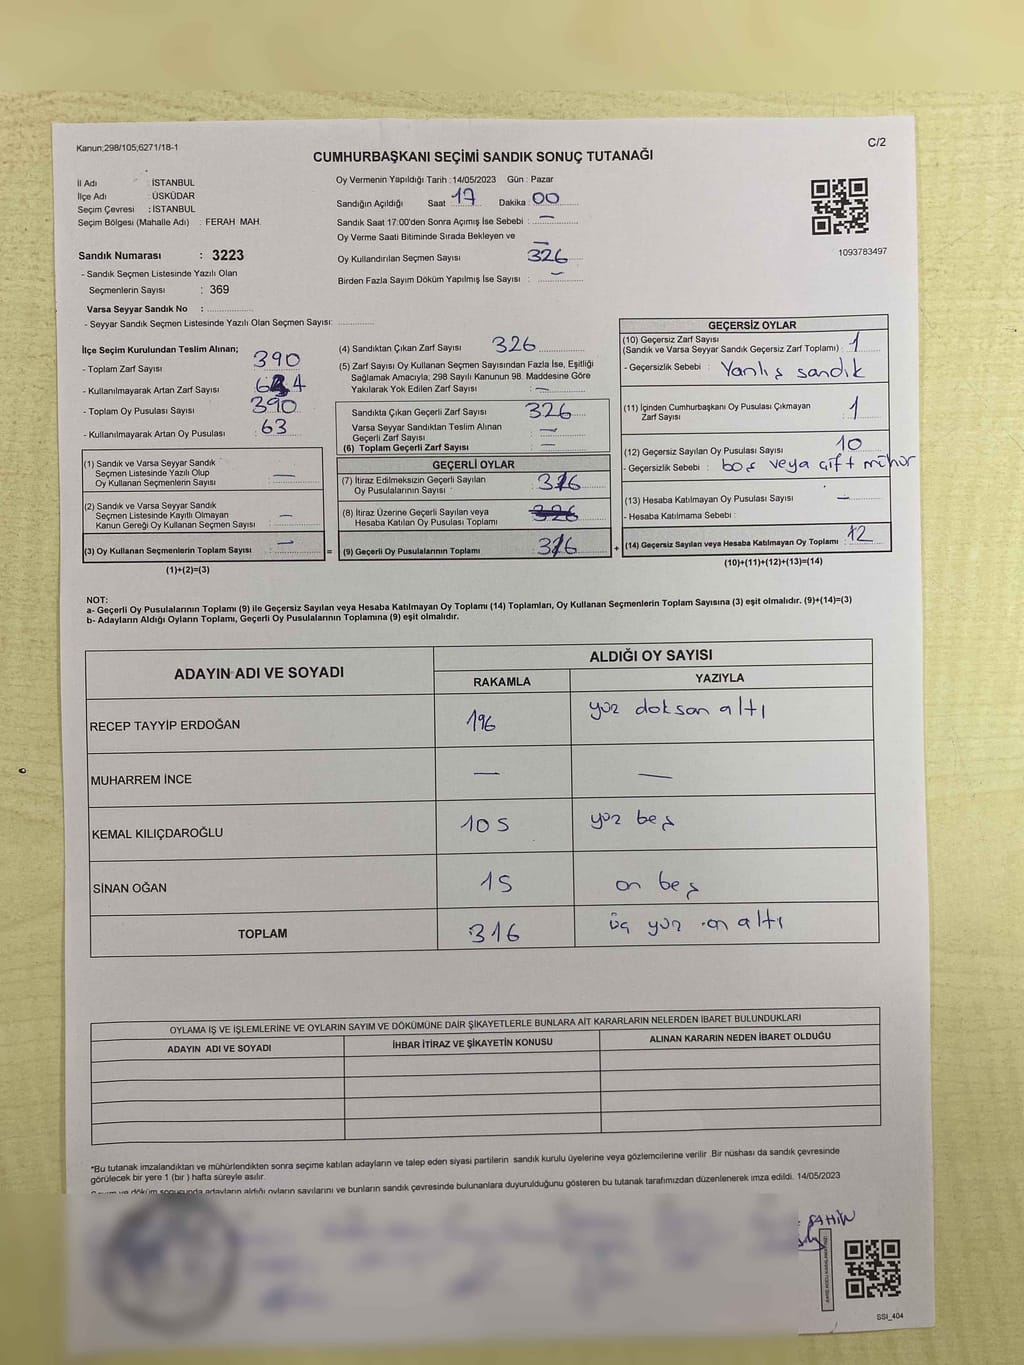 Kanun;298/105;6271/18-1
C/2
CUMHURBAŞKANI SEÇİMİ SANDIK SONUÇ TUTANAĞI
İl Adı : İSTANBUL
İlçe Adı : ÜSKÜDAR
Seçim Çevresi : İSTANBUL
Seçim Bölgesi (Mahalle Adı) : FERAH MAH.
Oy Vermenin Yapıldığı Tarih : 14/05/2023 Gün : Pazar
Sandığın Açıldığı Saat 17 Dakika 00
Sandık Saat 17:00'den Sonra Açımış İse Sebebi : —
Oy Verme Saati Bitiminde Sırada Bekleyen ve —
Oy Kullandırılan Seçmen Sayısı 326
Birden Fazla Sayım Döküm Yapılmış İse Sayısı : —
1093783497
Sandık Numarası : 3223
- Sandık Seçmen Listesinde Yazılı Olan
Seçmenlerin Sayısı : 369
Varsa Seyyar Sandık No :
- Seyyar Sandık Seçmen Listesinde Yazılı Olan Seçmen Sayısı:
İlçe Seçim Kurulundan Teslim Alınan;
- Toplam Zarf Sayısı 390
- Kullanılmayarak Artan Zarf Sayısı
- Toplam Oy Pusulası Sayısı 390
- Kullanılmayarak Artan Oy Pusulası 63
(1) Sandık ve Varsa Seyyar Sandık
Seçmen Listesinde Yazılı Olup
Oy Kullanan Seçmenlerin Sayısı : —
(2) Sandık ve Varsa Seyyar Sandık
Seçmen Listesinde Kayıtlı Olmayan
Kanun Gereği Oy Kullanan Seçmen Sayısı : —
(3) Oy Kullanan Seçmenlerin Toplam Sayısı : —
(1)+(2)=(3)
=
(4) Sandıktan Çıkan Zarf Sayısı 326
(5) Zarf Sayısı Oy Kullanan Seçmen Sayısından Fazla İse, Eşitliği
Sağlamak Amacıyla; 298 Sayılı Kanunun 98. Maddesine Göre
Yakılarak Yok Edilen Zarf Sayısı : —
Sandıkta Çıkan Geçerli Zarf Sayısı 326
Varsa Seyyar Sandıktan Teslim Alınan
Geçerli Zarf Sayısı : —
(6) Toplam Geçerli Zarf Sayısı : —
GEÇERLİ OYLAR
(7) İtiraz Edilmeksizin Geçerli Sayılan
Oy Pusulalarının Sayısı : 316
(8) İtiraz Üzerine Geçerli Sayılan veya
Hesaba Katılan Oy Pusulası Toplamı 326
(9) Geçerli Oy Pusulalarının Toplamı 316
+
GEÇERSİZ OYLAR
(10) Geçersiz Zarf Sayısı
(Sandık ve Varsa Seyyar Sandık Geçersiz Zarf Toplamı) : 1
- Geçersizlik Sebebi : Yanlış sandık
(11) İçinden Cumhurbaşkanı Oy Pusulası Çıkmayan
Zarf Sayısı : 1
(12) Geçersiz Sayılan Oy Pusulası Sayısı 10
- Geçersizlik Sebebi : boş veya çift mühür
(13) Hesaba Katılmayan Oy Pusulası Sayısı —
- Hesaba Katılmama Sebebi :
(14) Geçersiz Sayılan veya Hesaba Katılmayan Oy Toplamı : 12
(10)+(11)+(12)+(13)=(14)
NOT:
a- Geçerli Oy Pusulalarının Toplamı (9) ile Geçersiz Sayılan veya Hesaba Katılmayan Oy Toplamı (14) Toplamları, Oy Kullanan Seçmenlerin Toplam Sayısına (3) eşit olmalıdır. (9)+(14)=(3)
b- Adayların Aldığı Oyların Toplamı, Geçerli Oy Pusulalarının Toplamına (9) eşit olmalıdır.
ADAYIN ADI VE SOYADI
ALDIĞI OY SAYISI
RAKAMLA YAZIYLA
RECEP TAYYİP ERDOĞAN 196 yüz doksan altı
MUHARREM İNCE — —
KEMAL KILIÇDAROĞLU 105 yüz beş
SİNAN OĞAN 15 on beş
TOPLAM 316 üç yüz on altı
OYLAMA İŞ VE İŞLEMLERİNE VE OYLARIN SAYIM VE DÖKÜMÜNE DAİR ŞİKAYETLERLE BUNLARA AİT KARARLARIN NELERDEN İBARET BULUNDUKLARI
ADAYIN ADI VE SOYADI İHBAR İTİRAZ VE ŞİKAYETİN KONUSU ALINAN KARARIN NEDEN İBARET OLDUĞU
*Bu tutanak imzalandıktan ve mühürlendikten sonra seçime katılan adayların ve talep eden siyasi partilerin sandık kurulu üyelerine veya gözlemcilerine verilir .Bir nüshası da sandık çevresinde
görülecek bir yere 1 (bir ) hafta süreyle asılır.
Sayım ve döküm sonucunda adayların aldığı oyların sayılarını ve bunların sandık çevresinde bulunanlara duyurulduğunu gösteren bu tutanak tarafımızdan düzenlenerek imza edildi. 14/05/2023
ŞAHİN
SSI_404